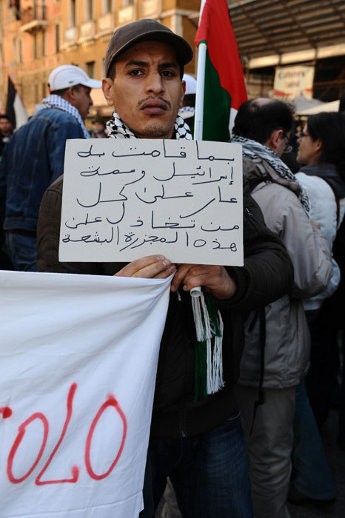 بما قامت به
إسرائيل وصمة
عار على كل
من تخاذل على
هذه المجزرة البشعة
OLO